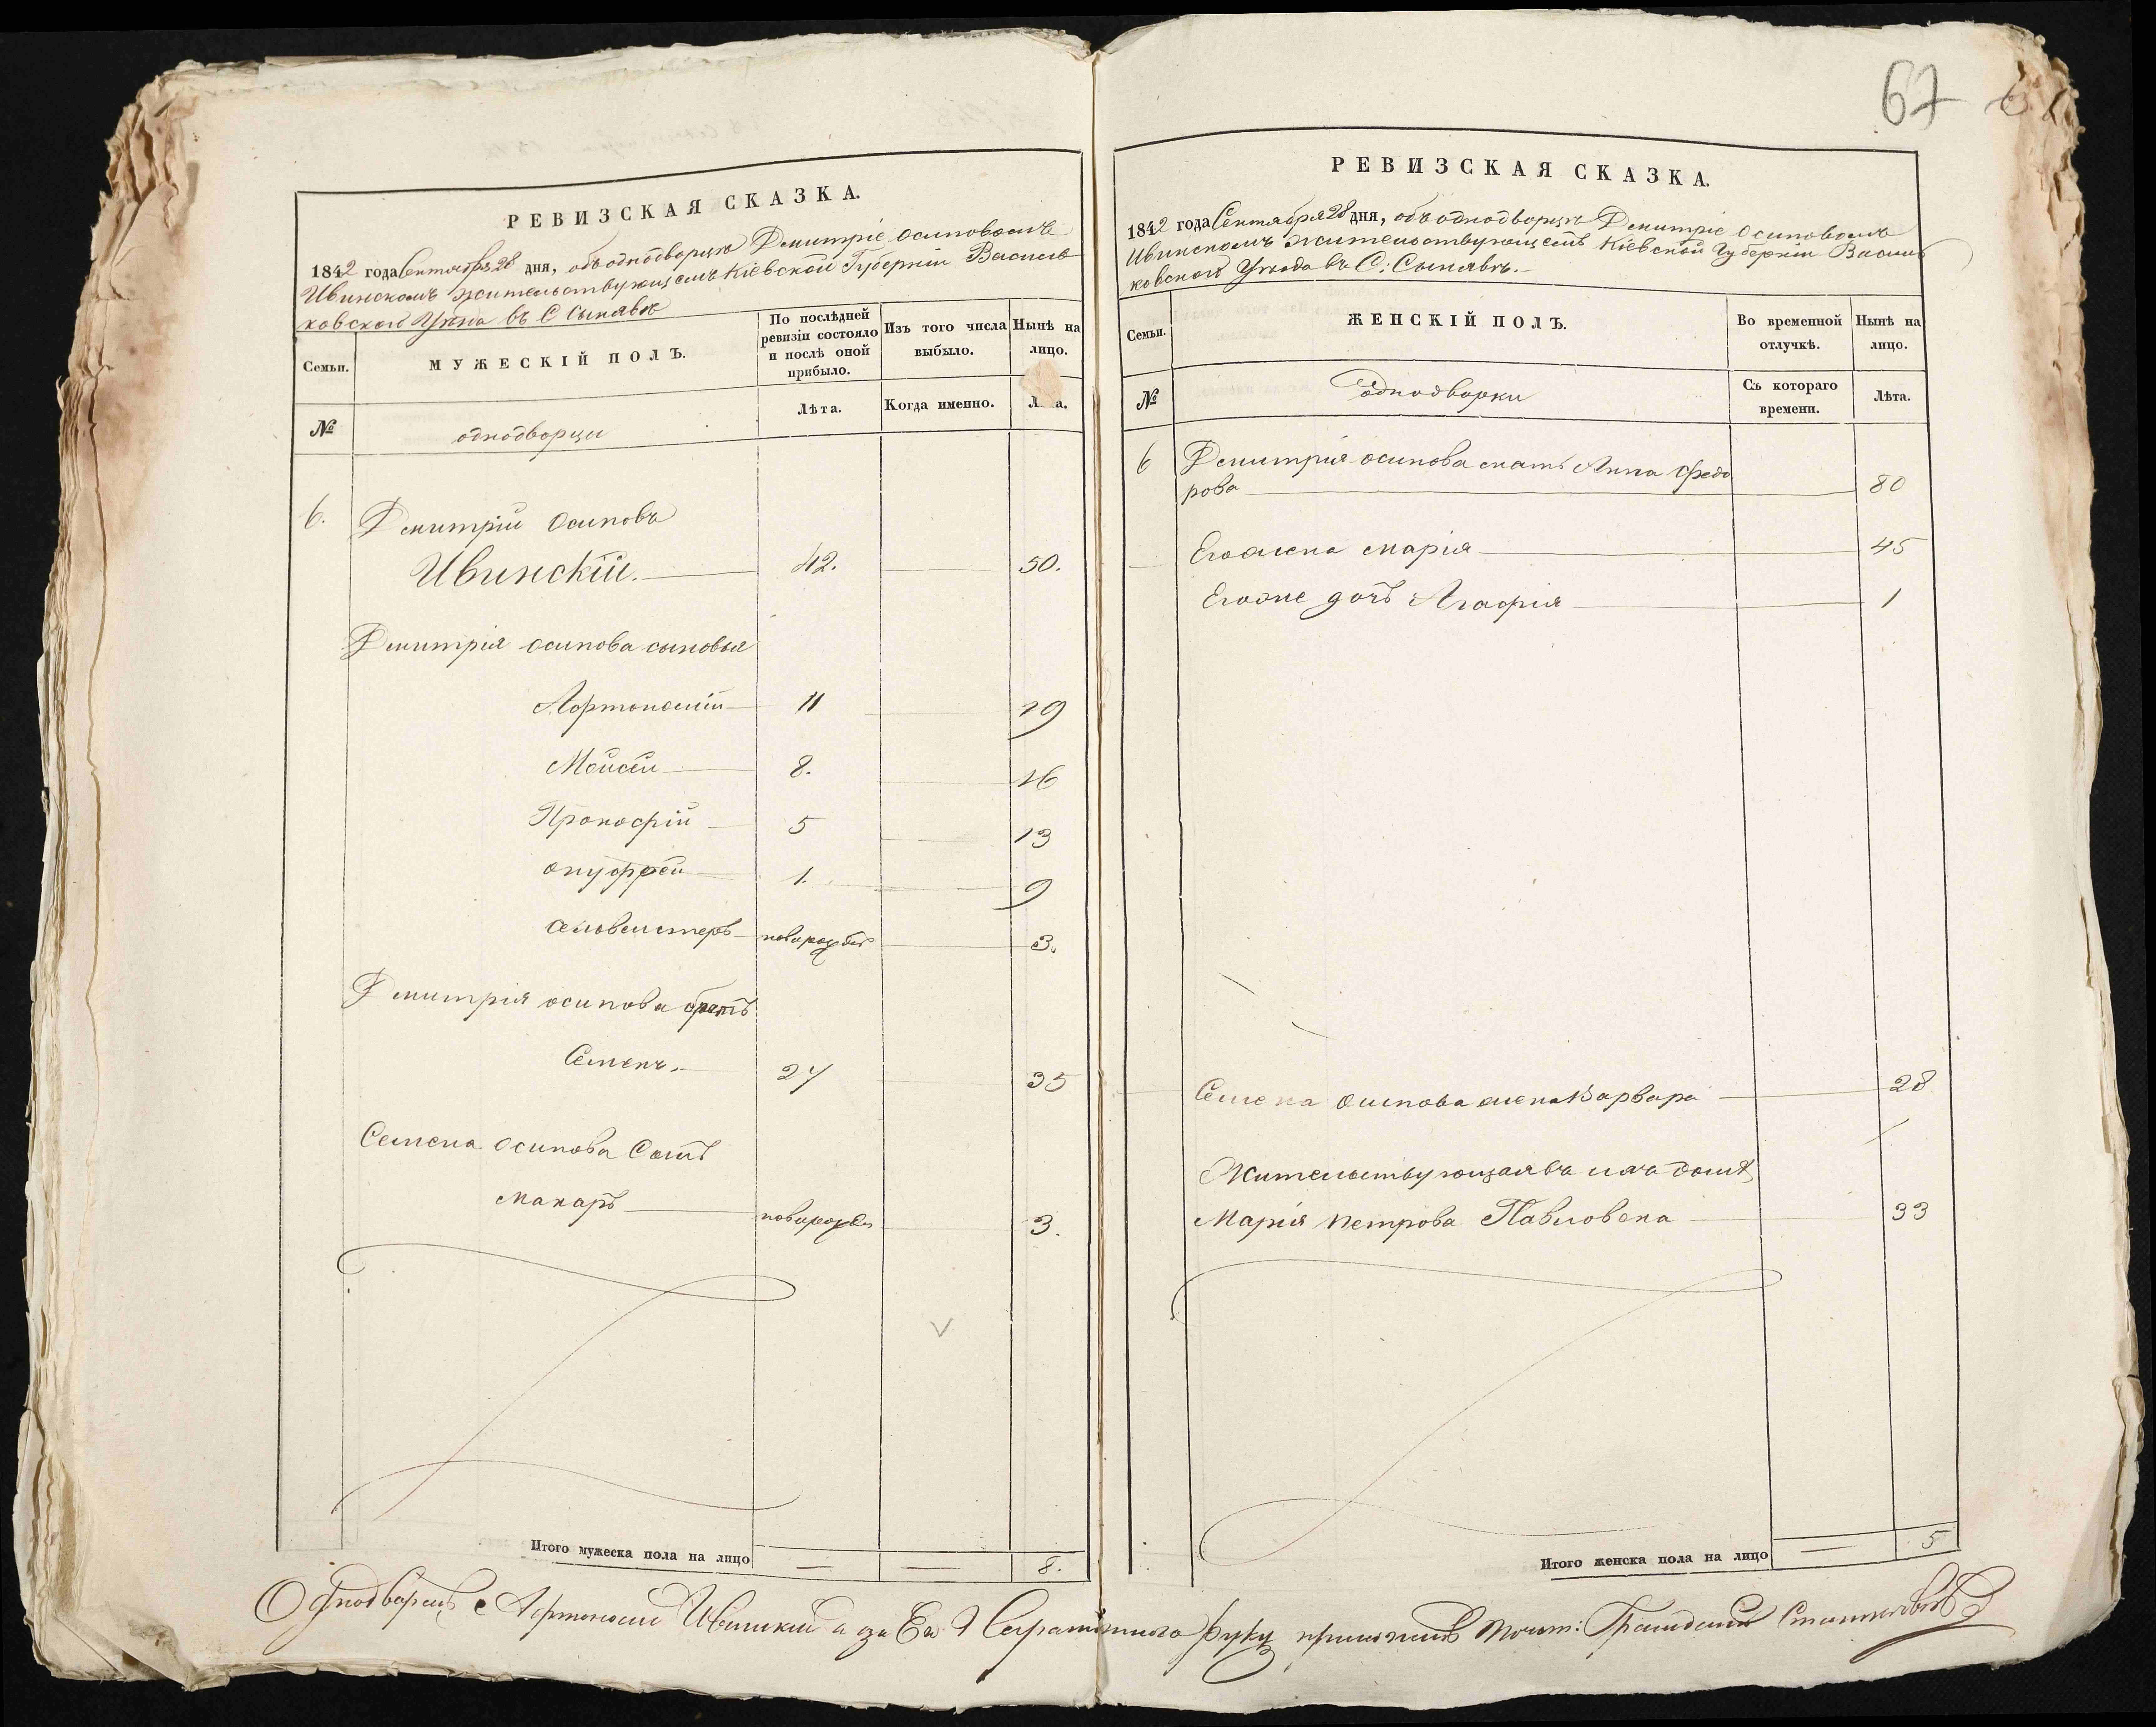 67
РЕВИЗСКАЯ СКАЗКА.
1842 года Сентября 28 дня, объ однодворцѣ Дмитріе Осиповомъ
Ивинскомъ жительствующемъ Кіевской Губерніи Василь
ковского Уезда въ С Сынявке
Семьи.
МУЖЕСКІЙ ПОЛЪ.
По послѣдней ревизіи состояло и послѣ оной прибыло.
Изъ того числа выбыло.
Нынѣ на лицо.
№
однодворцы
Лѣта.
Когда именно.
6. Дмитрій Осиповъ
Ивинскій. 42. 50.
Дмитрія осипова сыновья
Афтономій 11 19
Мойсѣй 8. 16
Прокофій 5 13
онуфрей 1. 9
Селивестеръ новорожден 3.
Дмитрія осипова братъ
Семенъ. 27 35
Семена осипова Сынъ
Макаръ новорожден 3.
Итого мужеска пола на лицо 8.
РЕВИЗСКАЯ СКАЗКА.
1842 года Сентября 28 дня, объ однодворцѣ Дмитріе Осиповомъ
Ивинскомъ жительствующемъ Кіевской Губерніи Василь
ковского Уезда въ С: Сынявкѣ.
Семьи.
ЖЕНСКІЙ ПОЛЪ.
Во временной отлучкѣ.
Нынѣ на лицо.
№
однодворки
Съ котораго времени.
Лѣта.
6 Дмитрія осипова мать Анна Федо
рова 80
Его жена марія 45
Его же дочь Агафія 1
Семена осипова жена Варвара 28
Жительствующая въ ихъ домѣ
Марія петрова Павловска 33
Итого женска пола на лицо 5
Однодворецъ Афтономий Ивинский а за Его Неграмотного руку приложилъ